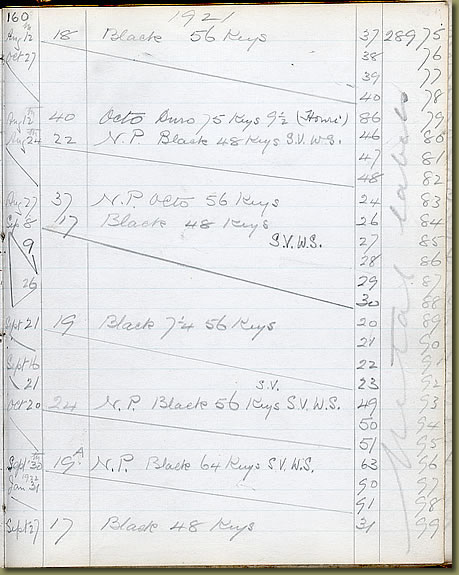 160 1921
Aug 12th 18 Black 56 Keys 37 28975
Oct 27 38 76
39 77
40 78
Aug 12th 40 Octo Duro 75 Keys 9½ (Honri) 86 79
Aug 24th 22 N.P. Black 48 Keys S.V.W.S. 46 80
47 81
48 82
Aug 27 37 N.P. Octo 56 Keys 24 83
Sep 8 17 Black 48 Keys 26 84
9 S.V.W.S. 27 85
28 86
26 29 87
30 88
Sept 21 19 Black 7¼ 56 Keys 20 89
21 90
Sept 16 22 91
21 S.V. 23 92
Oct 20 24 N.P. Black 56 Keys S.V.W.S. 49 93
50 94
51 95
Sept 30th 19A N.P. Black 64 Keys S.V.W.S. 63 96
Jan 31 1922 90 97
91 98
Sept 27 17 Black 48 Keys 31 99
Metal Labels